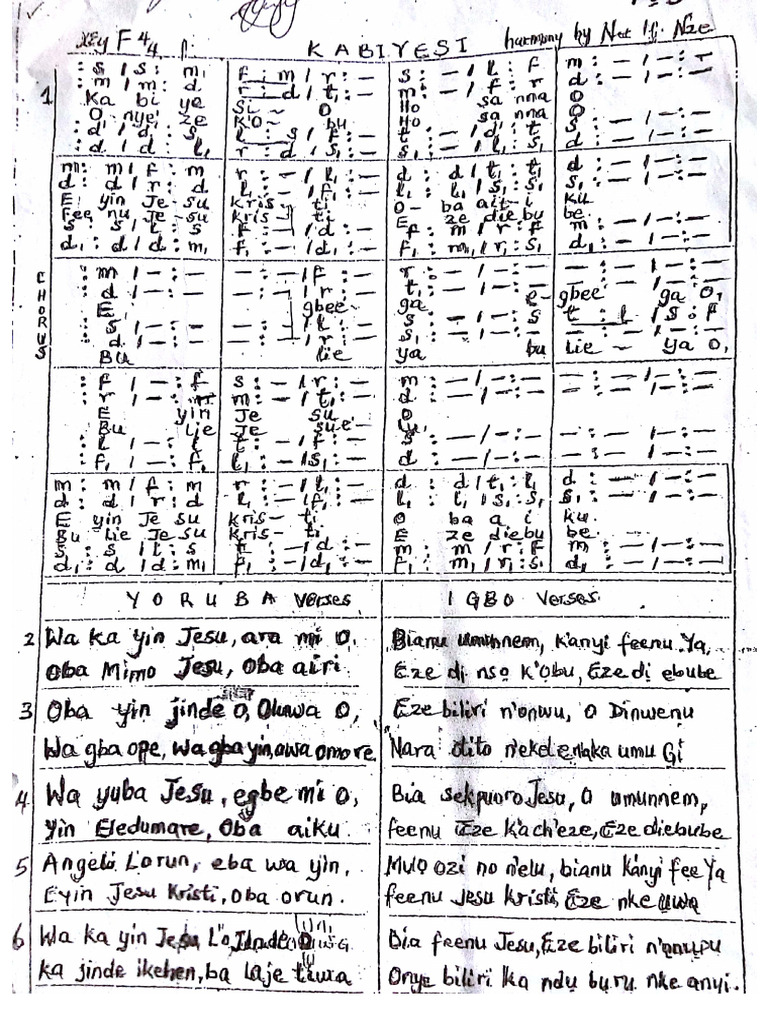 Key F 4/4
KABIYESI
harmony by Nze
1
: s / s : m, f : m / r : — s : — / l : f m : — / — : —
: m / m : d r : d / t, : — m : — / f : r d : — / — : —
Ka bi ye si ~ O Ho sa nna O
O nye ze K'O ~ bu Ho sa nna O
: d' / d' : s l : s / f : — t : — / d' : t s : — / — : —
: d / d : l, r : d / s, : — s, : — / l, : s, d : — / — : —
m : m / f : m r : — / l, : — d : d / t, : t, d : — / — : —
d : d / r : d l, : — / f, : — l, : l, / s, : s, s, : — / — : —
E yin Je su Kris ti O ba ait i ku
Fee nu Je su Kris ti E ze die bu be
s : s / l : s f : — / d : — f : m / r : f m : — / — : —
d, : d / d : m, f, : — / d, : — f, : m, / r, : s, d, : — / — : —
CHORUS
: m / — : — — : — / f : — r : — / — : — — : — / — : —
: d / — : — — : — / r : — t, : — / — : — — : — / — : —
E gbee ga e- gbee ga O,
: s / — : — — : — / l : — s : — / — : s t : l / s : f
: d / — : — — : — / r : — s : — / — : — — : — / — : —
Bu lie ya bu lie ~ ya O,
: f / — : f s : — / r : — m : — / — : — — : — / — : —
: r / — : m m : — / t, : — d : — / — : — — : — / — : —
E yin Je su O
Bu lie Je sue
: l / — : l t : — / f : — s : — / — : — — : — / — : —
: f, / — : f, l, : — / s, : — d : — / — : — — : — / — : —
m : m / f : m r : — / l, : — d : d / t, : l, d : — / — : —
d : d / r : d l, : — / f, : — l, : l, / s, : s, s, : — / — : —
E yin Je su Kris- ti O ba a i ku.
Bu lie Je su Kris- ti E ze diebu be.
s : s / l : s f : — / d : — m : m / r : f m : — / — : —
d, : d / d : m, f, : — / d, : — f, : m, / r, : s, d, : — / — : —
YORUBA Verses
IGBO Verses
2 Wa ka yin Jesu, ara mi o,
Oba Mimo Jesu, Oba airi.
Bianu umunnem, K'anyi feenu Ya,
Eze di nso k'Obu, Eze di ebube
3 Oba yin jinde o, Oluwa o,
Wa gba ope, wa gba yin, awa omo re.
Eze biliri n'onwu, O Dinwenu
Nara dito n'ekele n'aka umu Gi
4 Wa yuba Jesu, egbe mi o,
yin Eledumare, Oba aiku.
Bia sekpuoro Jesu, O umunnem,
feenu Eze k'ach'eze, Eze diebube
5 Angeli L'orun, eba wa yin,
Eyin Jesu Kristi, Oba orun.
Muo ozi no n'elu, bianu kanyi fee Ya
feenu Jesu Kristi, Eze nke uwa
6 Wa ka yin Jesu L'o Jinde
ka jinde ikehen, ba laje tiwa
Bia feenu Jesu, Eze biliri n'onwu
Onye biliri ka ndu buru nke anyi.